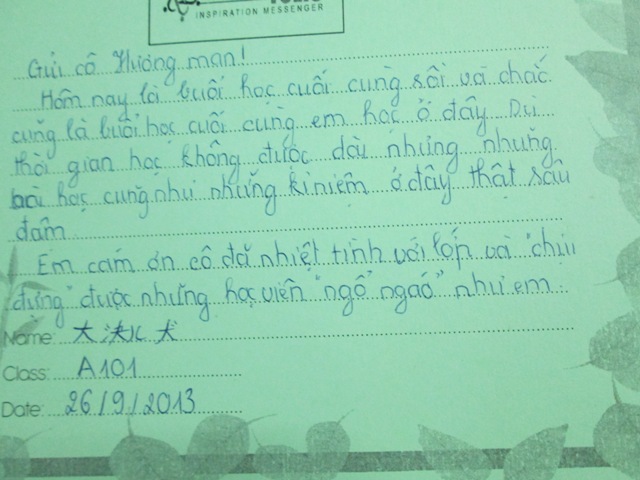 INSPIRATION MESSENGER
Gửi cô Hương man!
Hôm nay là buổi học cuối cùng rồi và chắc
cũng là buổi học cuối cùng em học ở đây. Dù
thời gian học không được dài nhưng những
bài học cũng như những kỉ niệm ở đây thật sâu
đậm
Em cám ơn cô đã nhiệt tình với lớp và "chịu
đựng" được những học viên "ngổ ngáo" như em.
Name: 大 犬
Class: A101
Date: 26/9/2013